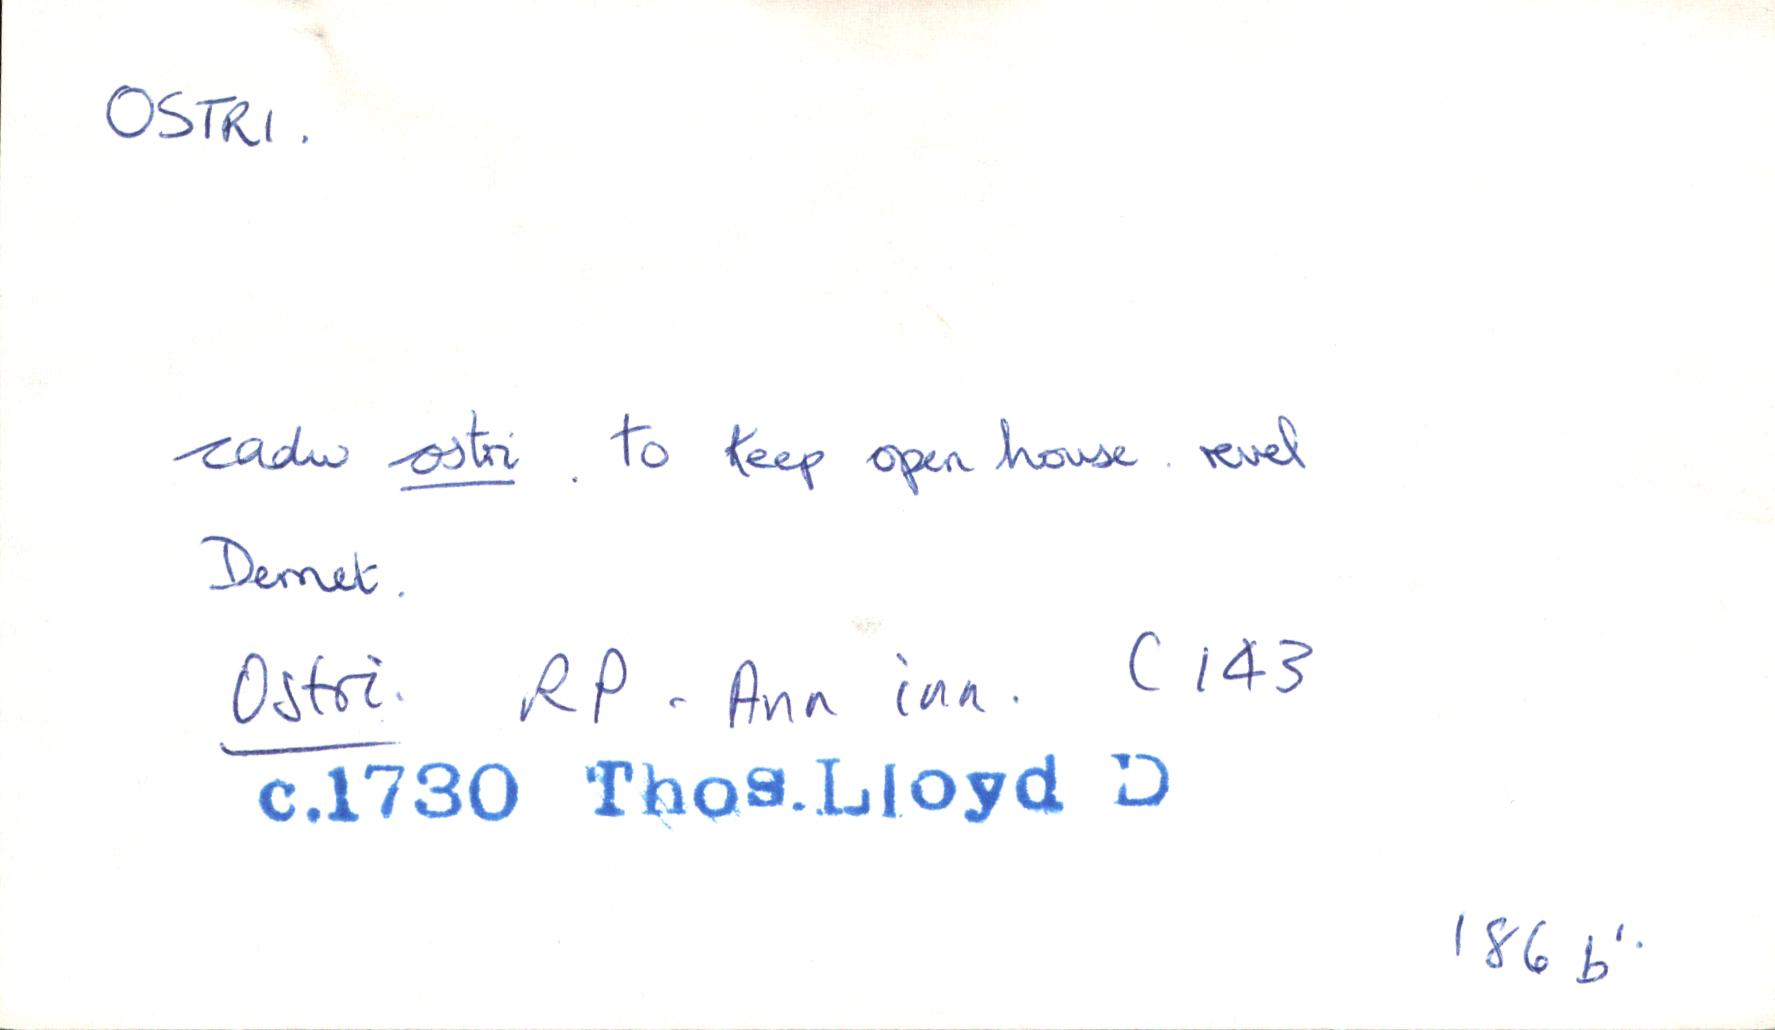 OSTRI.
cadw ostri. to keep open house. revel
Demet.
Ostri. RP - Ann inn. C 143
c.1730 Thos.Lloyd D
186 b'.